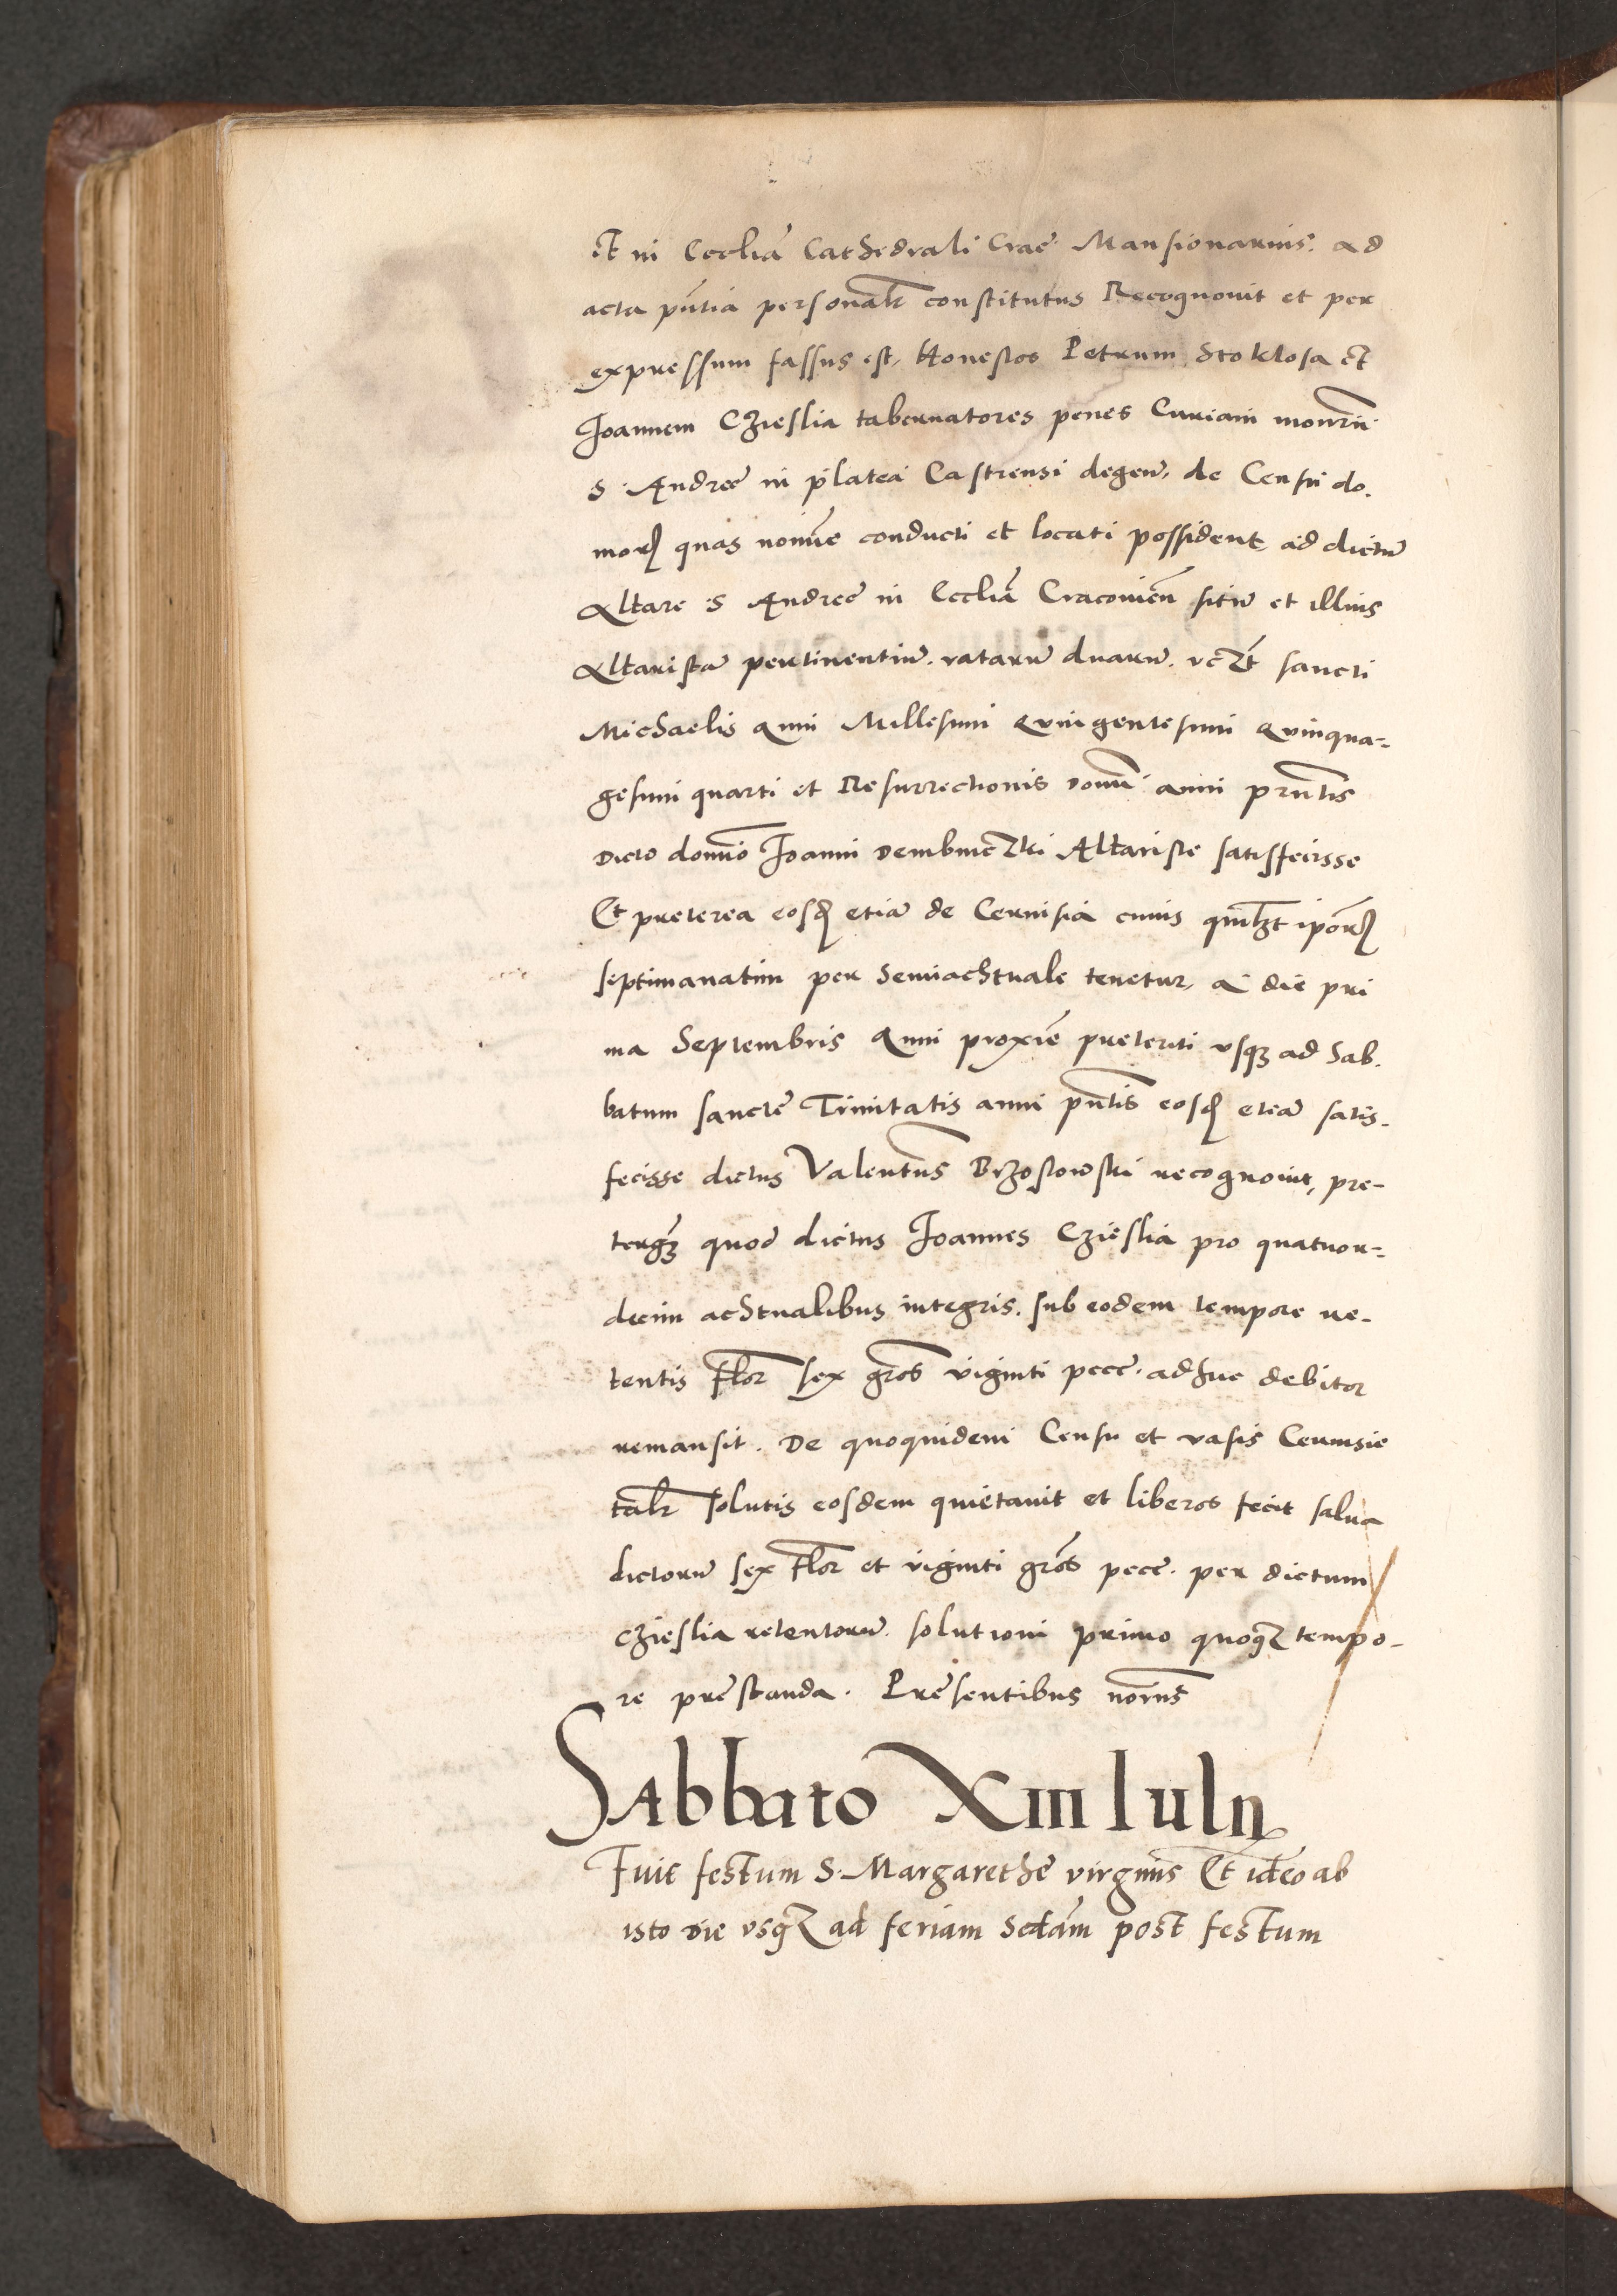 Et in Eccliā Cathedrali Crac̄ Mansionarius. ad
acta pn̄tia personalr̄ constitutus Recognovit et per
expressum fassus est, Honestos Petrum Stoklosa et
Joannem Czieslia tabernatores penes Curiam monrii
S. Andreę in platea Castrensi degen. de Censu do.
morꝝ quas nomīe conducti et locati possident, ad dictū
Altare S Andreę in Eccliā Cracovien̄ sitū et illius
Altaristā pertinentiū. ratarū duarū. vczt̄ sancti
Michaelis Anni Millesimi Quingentesimi Quinqua-
gesimi quarti et Resurrectionis domī anni prn̄tis
Dicto domīo Joanni Dembinczki Altaristę satisfecisse
Et preterea eosd̄ etiā de Cervisia cuius quilꝫt ipōrꝝ
septimanatim per Semiachtuale tenetur, a die pri
ma Septembris Anni proxīe preteriti usqꝫ ad Sab.
batum sanctę Trinitatis anni pn̄tis eosd̄ etiā satis.
fecisse dictus Valentin̄s Brzostowski recognovit, pre-
terqꝫ quod dictus Joannes Czieslia pro quatuor-
decim achtualibus integris. sub eodem tempore re.
tentis Flor̄ sex gros̄ viginti pecc. adhuc debitor
remansit. De quoquidem Censu et vasis Cervisię
talr̄ solutis eosdem quietavit et liberos fecit salva
dictorū sex Flor̄ et viginti gros̄ pecc. per dictum
Czieslia retentorū. solutioni primo quoqꝫ tempo-
re prestanda. Pręsentibus nor̄ns
Sabbato XIII Iulii
Fuit festum S. Margarethę virginis Et ideo ab
isto die usqꝫ ad feriam Scdām post festum